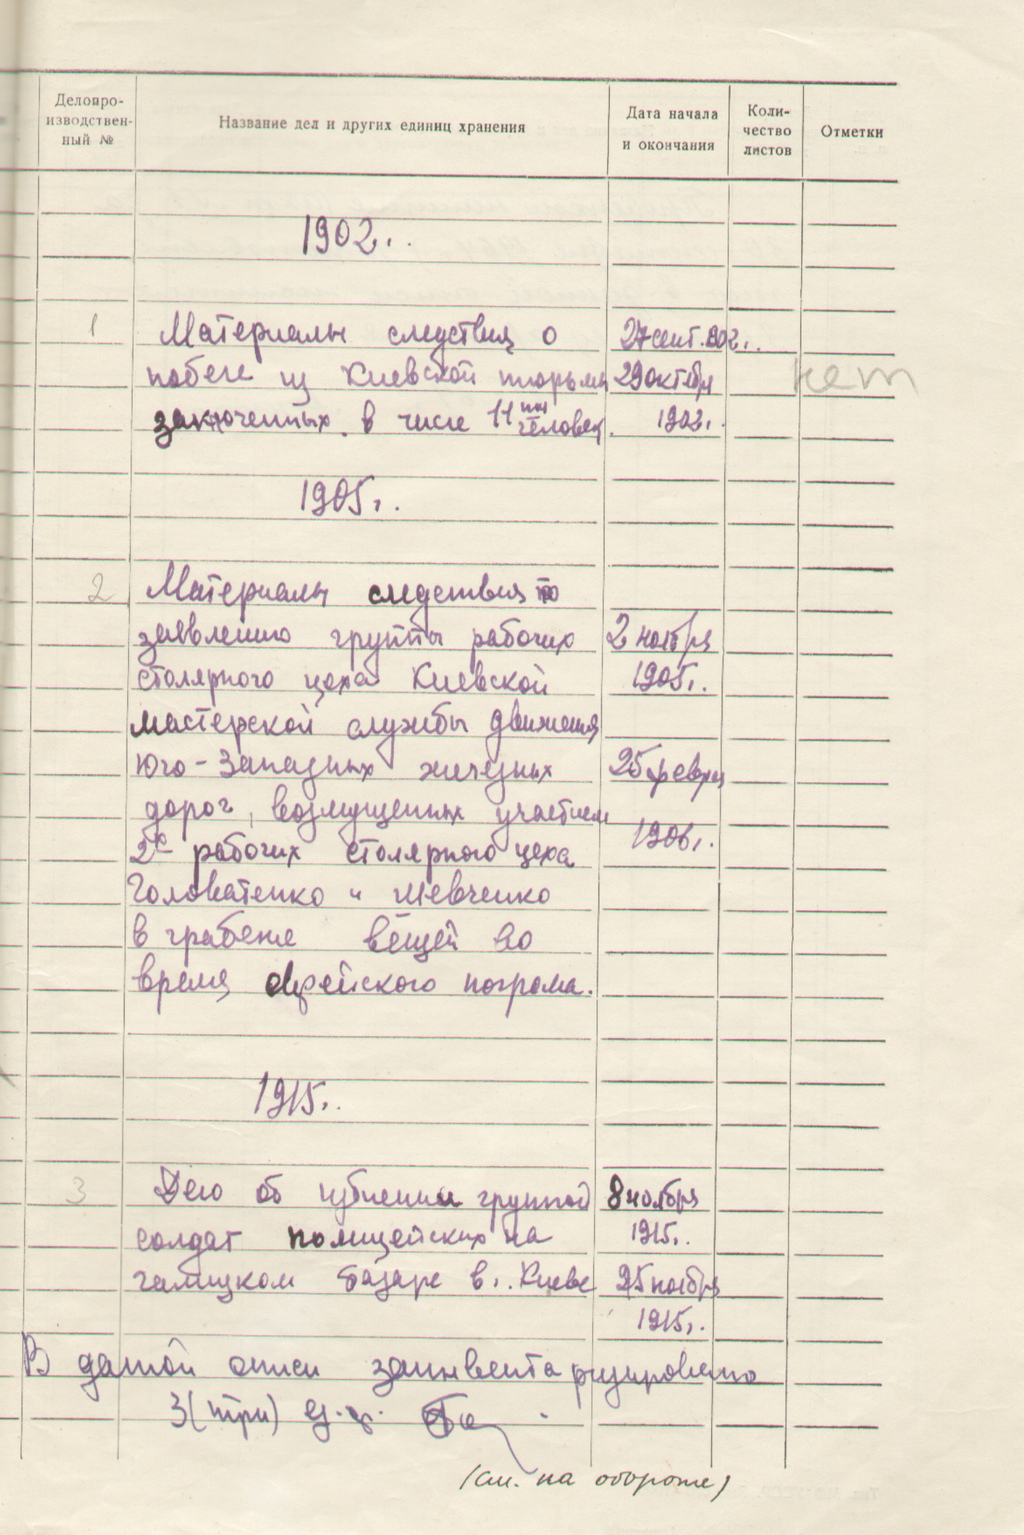 Делопро-
изводствен-
ный №
Название дел и других единиц хранения
Дата начала
и окончания
Коли-
чество
листов
Отметки
1902г.
1 Материалы следствия о 27 сент. 902г.
побеге из Киевской тюрьмы 29 октября нет
заключенных в числе 11 ти человек. 1902г.
1905г.
2 Материалы следствия по
заявлению группы рабочих 2 ноября
столярного цеха Киевской 1905г.
мастерской службы движения
Юго-Западных железных 25 февраля
дорог, возмущенных участием
2х рабочих столярного цеха 1906г.
Головатенко и Шевченко
в грабеже вещей во
время еврейского погрома.
1915г.
3 Дело об избиении группой 8 ноября
солдат полицейских на 1915г.
галицком базаре в г. Киеве 25 ноября
1915г.
В данной описи заинвентаризировано
3 (три) ед. хр.
(см. на обороте)